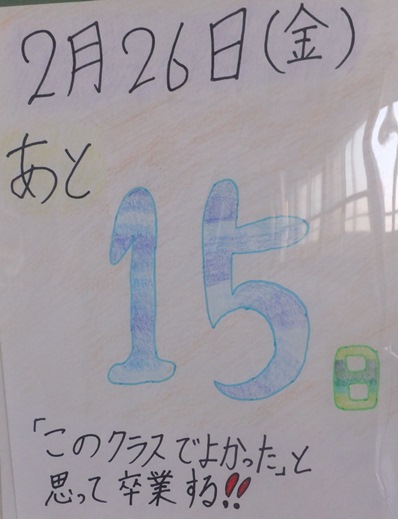 2月26日(金)
あと
15日
「このクラスでよかった」と
思って卒業する!!